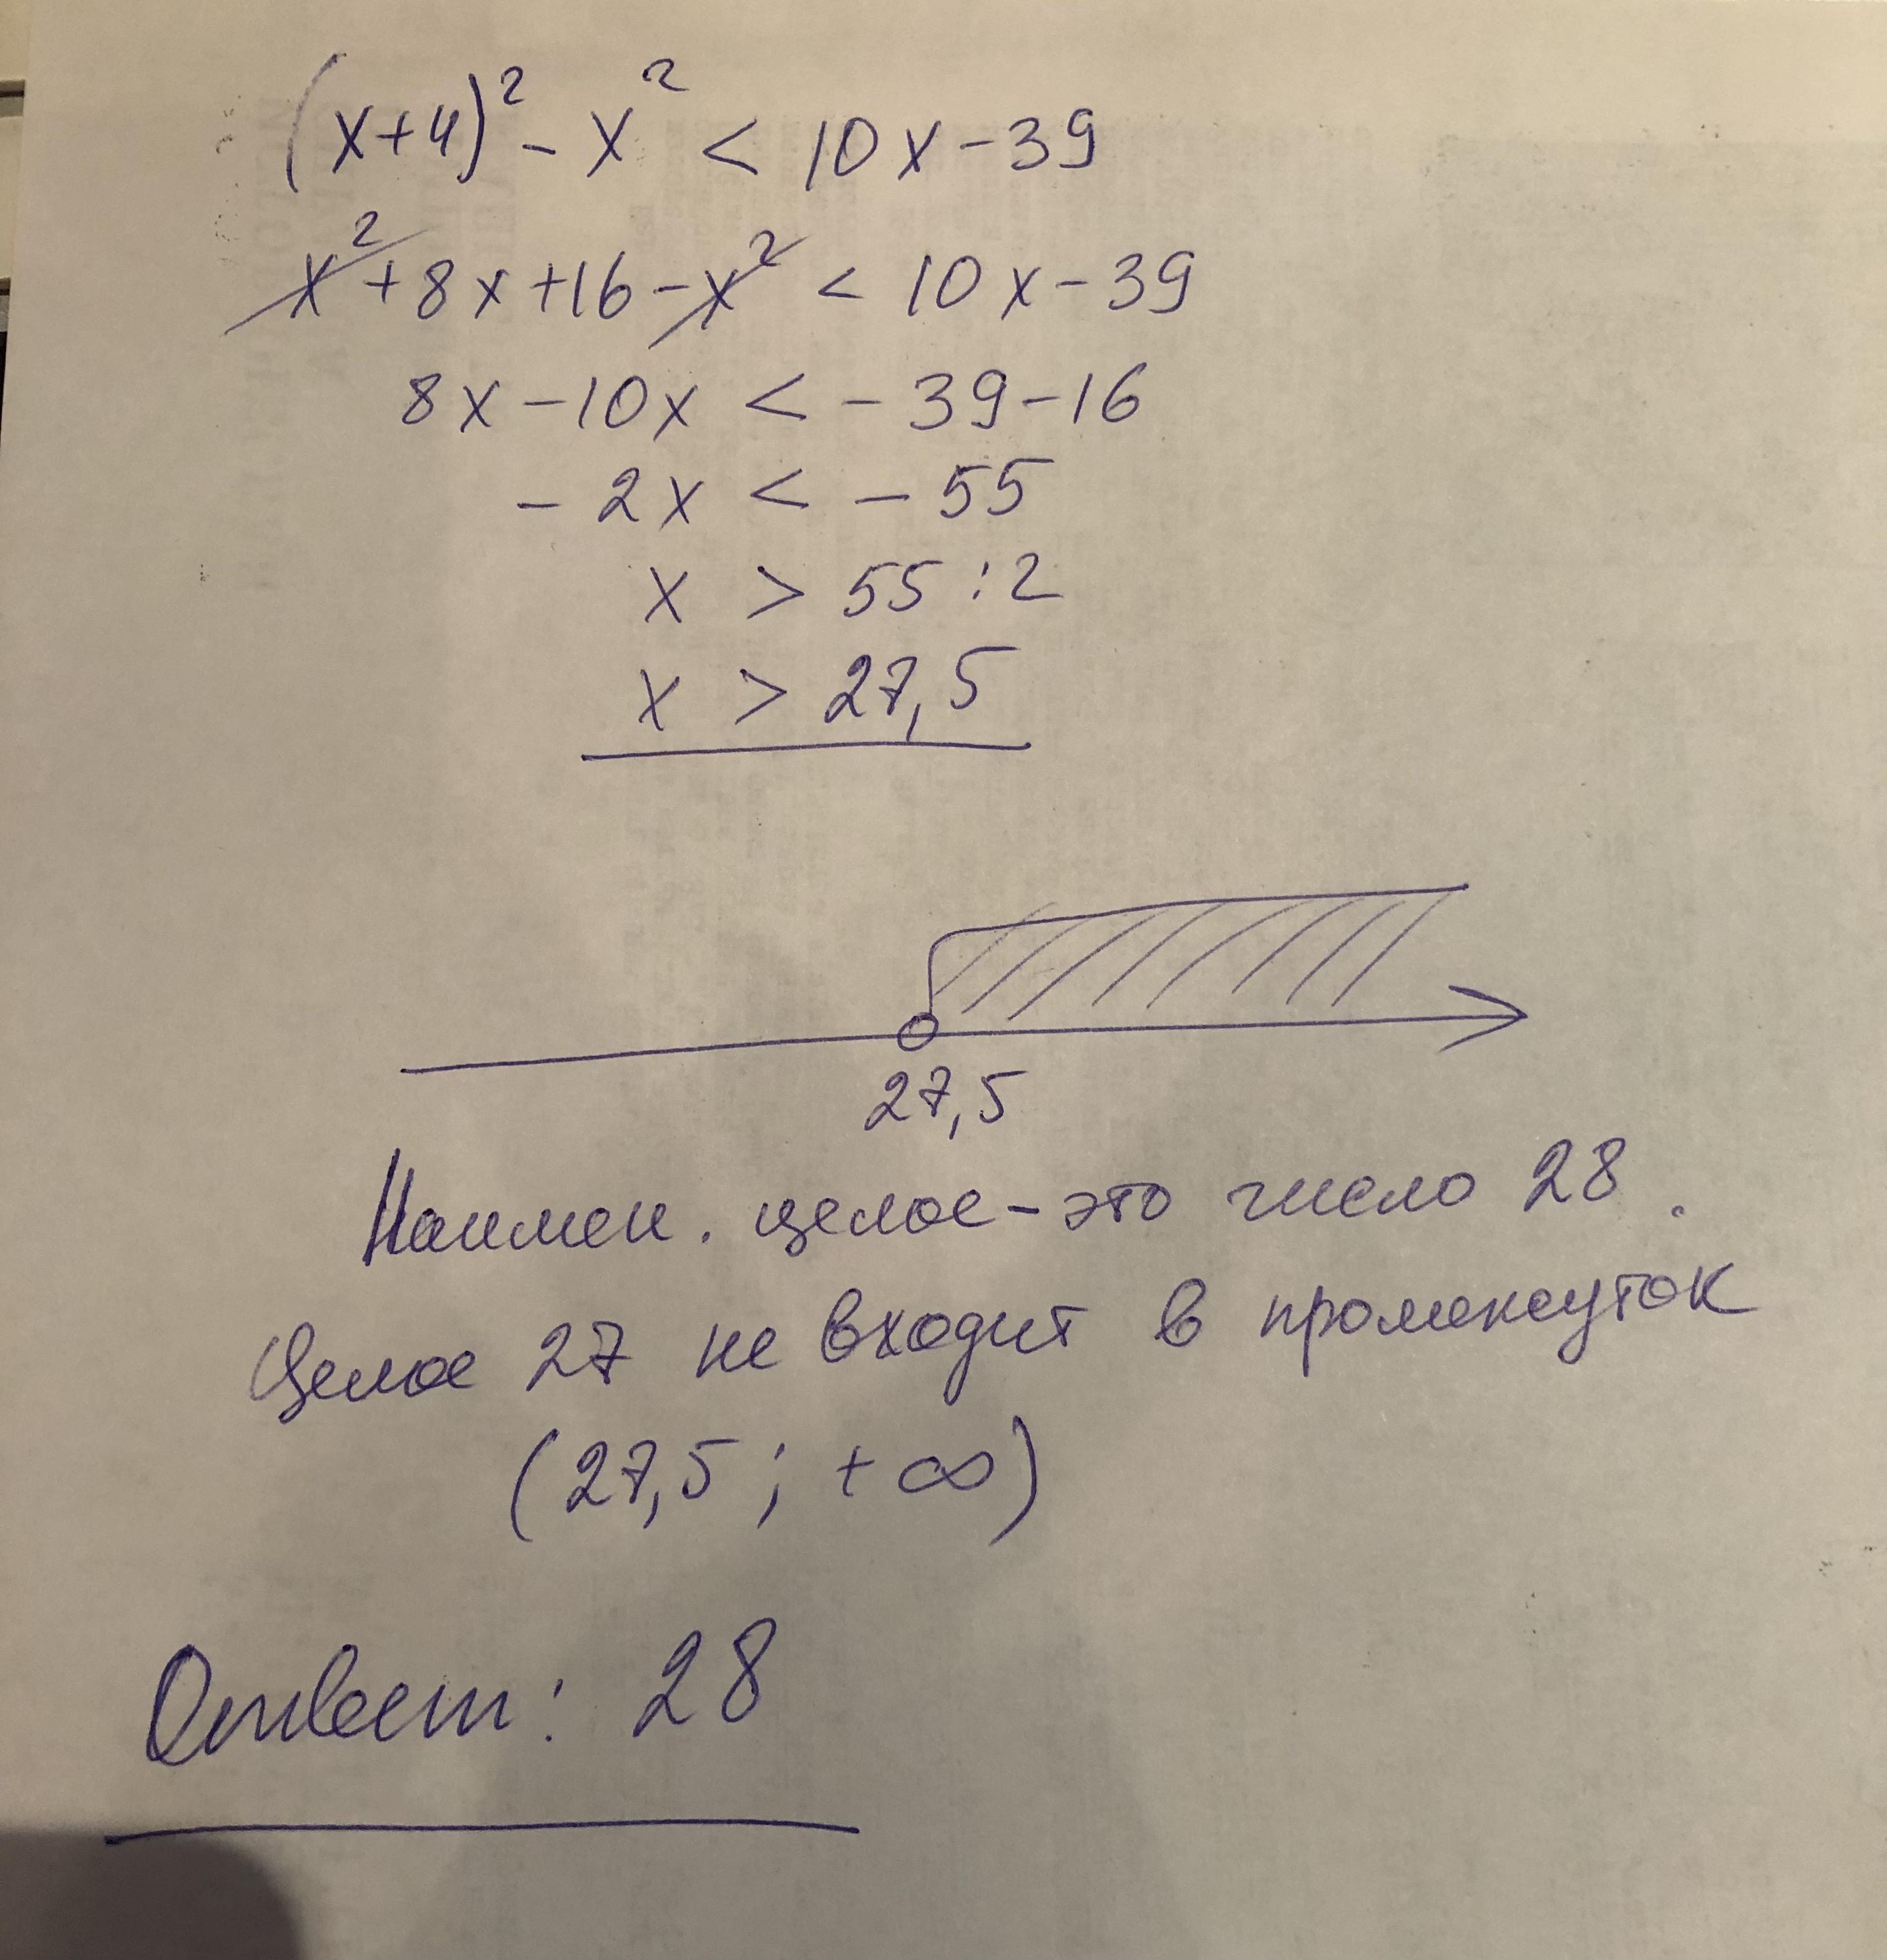 (x+4)² - x² < 10x - 39
x² + 8x + 16 - x² < 10x - 39
8x - 10x < - 39 - 16
- 2x < - 55
x > 55 : 2
x > 27,5
27,5
Наимен. целое - это число 28.
Целое 27 не входит в промежуток
(27,5 ; + ∞)
Ответ: 28